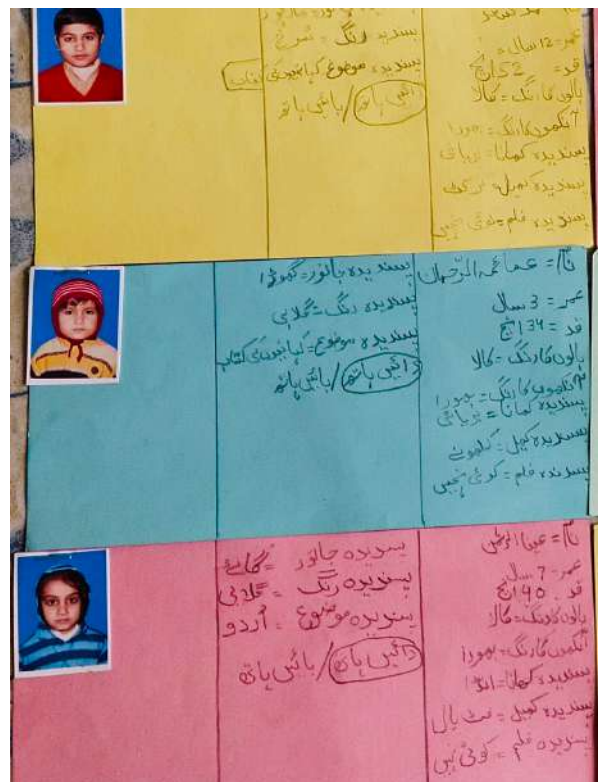 عمر = 12 سال
قد = 52 انچ
بالوں کا رنگ = کالا
آنکھوں کا رنگ = بھورا
پسندیدہ کھانا = بریانی
پسندیدہ کھیل = کرکٹ
پسندیدہ فلم = کوئی نہیں
پسندیدہ رنگ = سرخ
پسندیدہ موضوع کہانیوں کی کتاب
دائیں ہاتھ / بائیں ہاتھ
نام = الرحمان
عمر = 3 سال
قد = 34 انچ
بالوں کا رنگ = کالا
آنکھوں کا رنگ = بھورا
پسندیدہ کھانا = بریانی
پسندیدہ کھیل = کھلونے
پسندیدہ فلم = کوئی نہیں
پسندیدہ جانور = گھوڑا
پسندیدہ رنگ = گلابی
پسندیدہ موضوع = کہانیوں کی کتاب
دائیں ہاتھ / بائیں ہاتھ
نام =
عمر = 7 سال
قد = 40 انچ
بالوں کا رنگ = کالا
آنکھوں کا رنگ = بھورا
پسندیدہ کھانا = انڈا
پسندیدہ کھیل = فٹ بال
پسندیدہ فلم = کوئی نہیں
پسندیدہ جانور = گائے
پسندیدہ رنگ = گلابی
پسندیدہ موضوع = اُردو
دائیں ہاتھ / بائیں ہاتھ